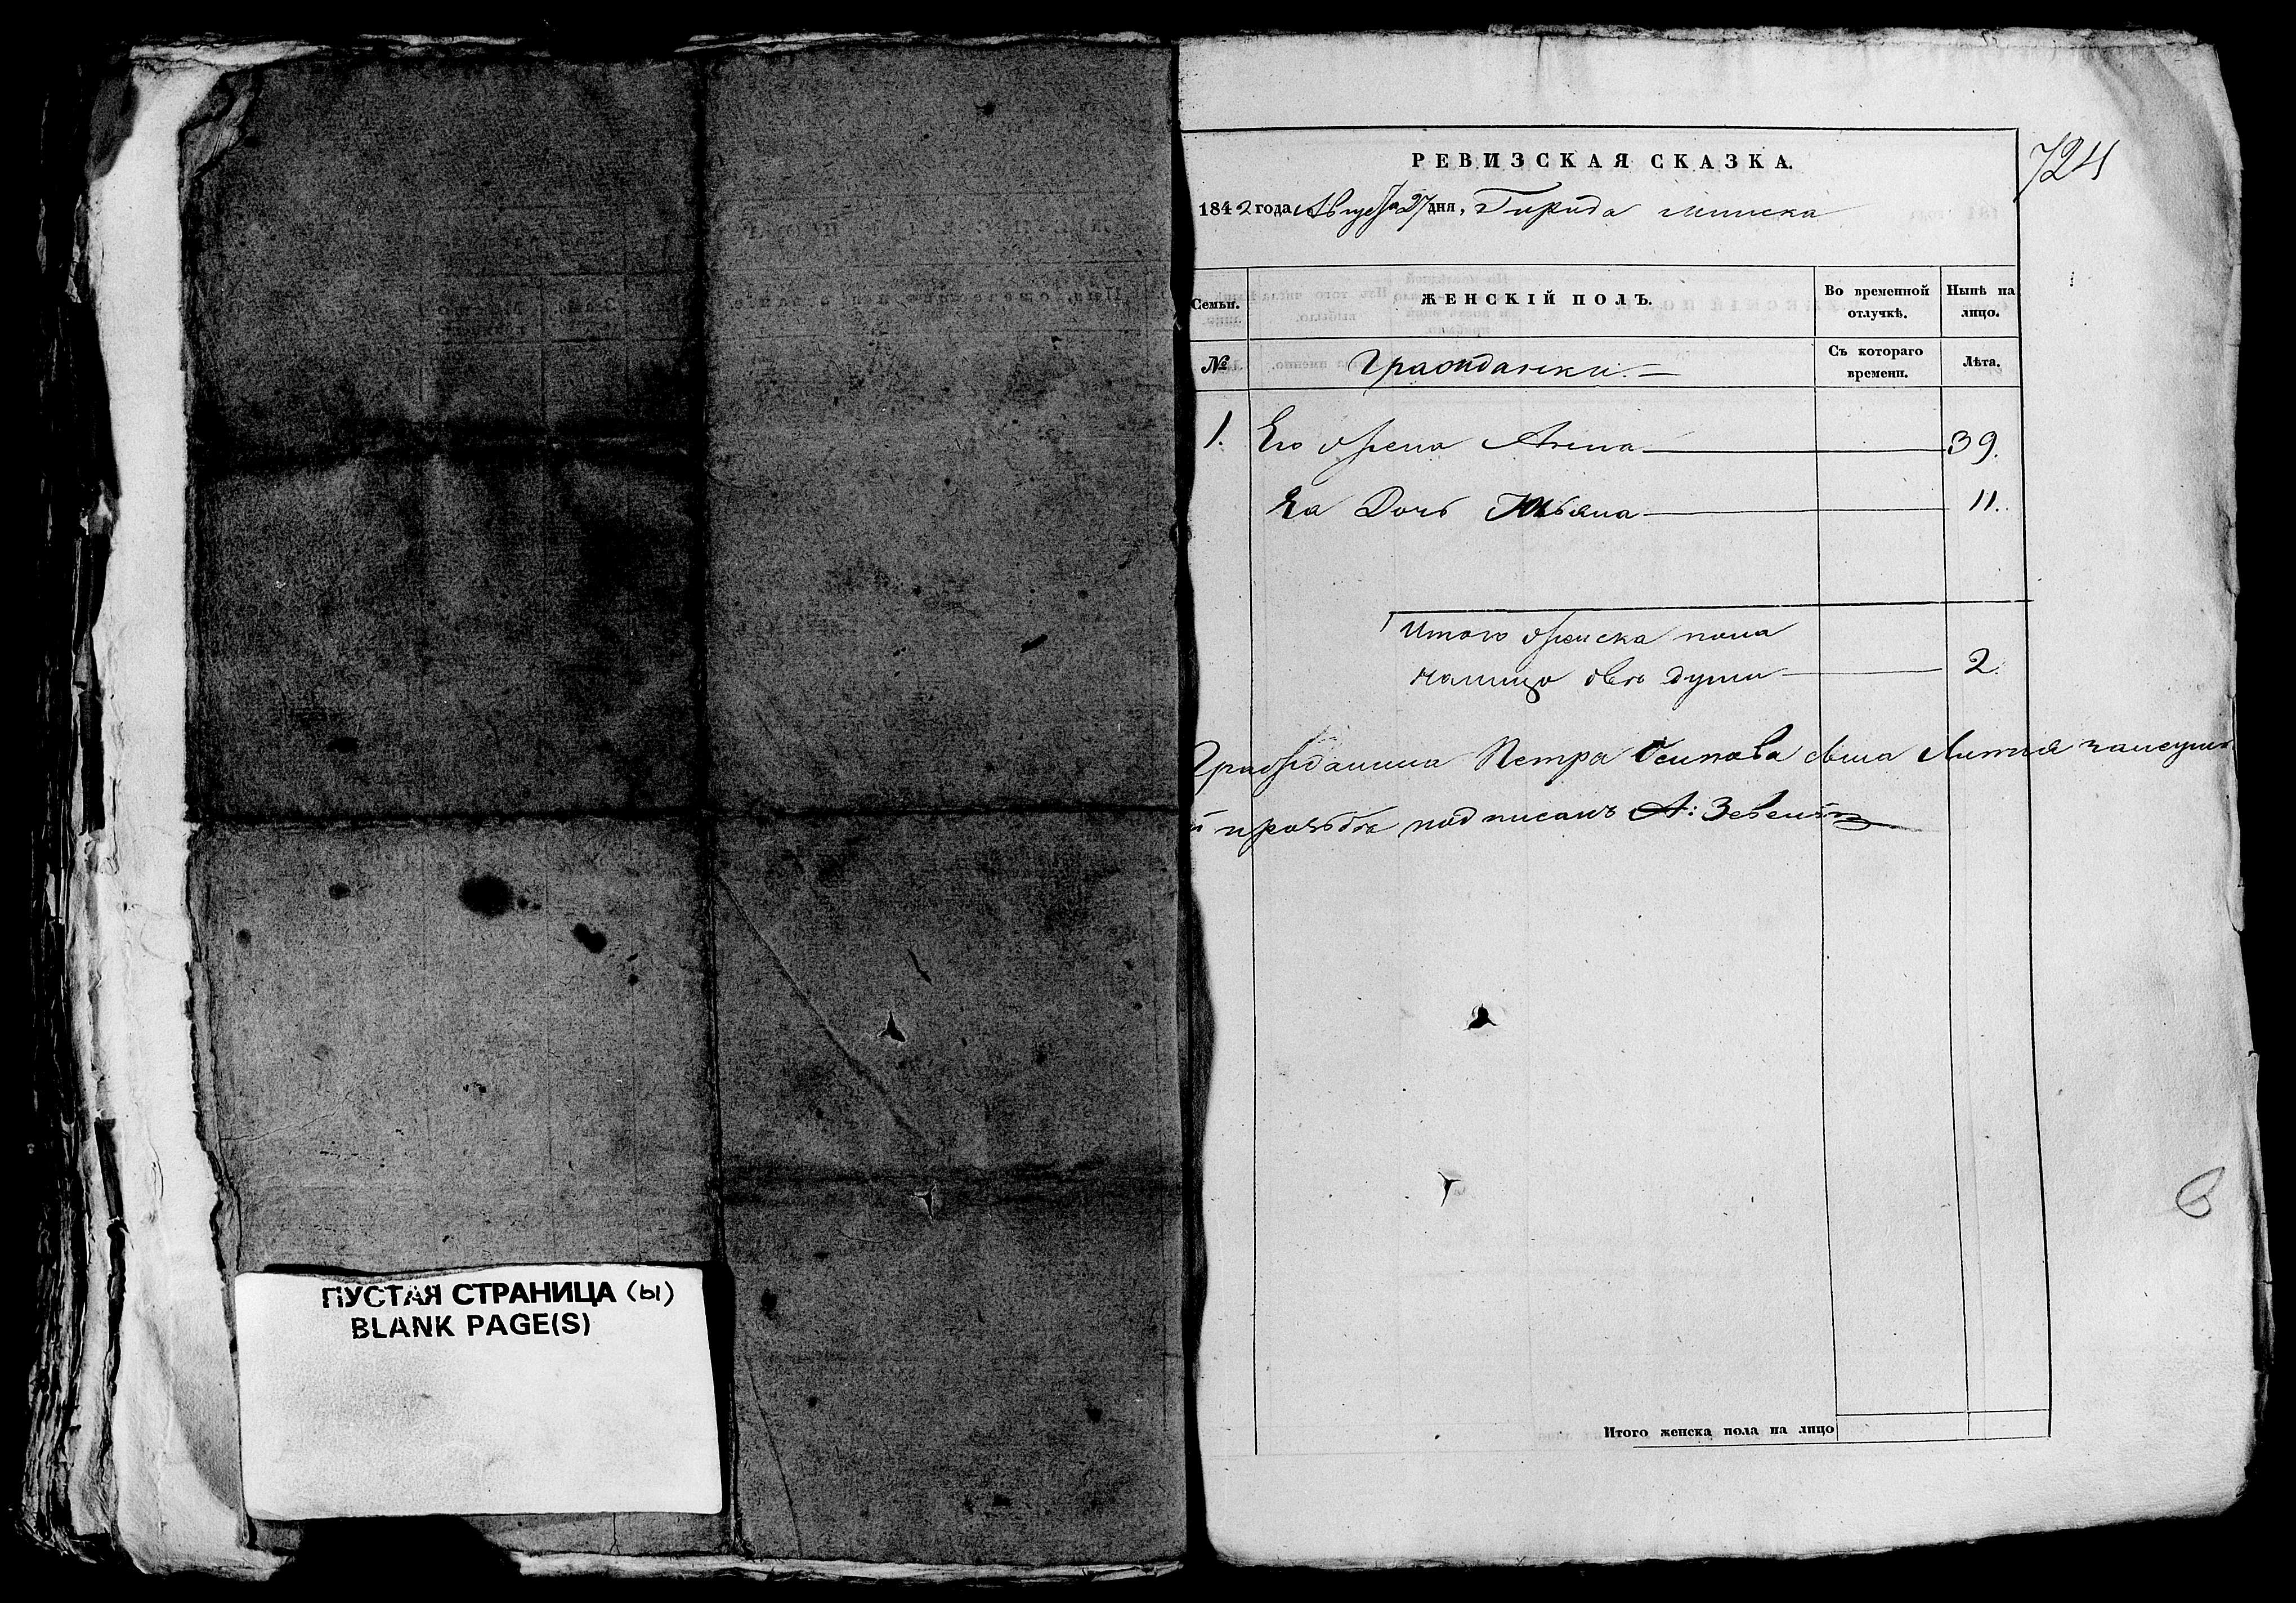 ПУСТАЯ СТРАНИЦА (ы)
BLANK PAGE(S)
724
РЕВИЗСКАЯ СКАЗКА.
1842 года Августа 27 дня, Города Минска
Семьи. ЖЕНСКІЙ ПОЛЪ. Во временной отлучкѣ. Нынѣ на лицо.
№ Гражданки. Съ котораго времени. Лѣта.
1. Его жена Анна 39.
Ея Дочь Юльяна 11.
Итого женска пола
налицо двѣ души 2.
Гражданина Петра Осипова сына
прозьбѣ подписалъ А:
Итого женска пола на лицо